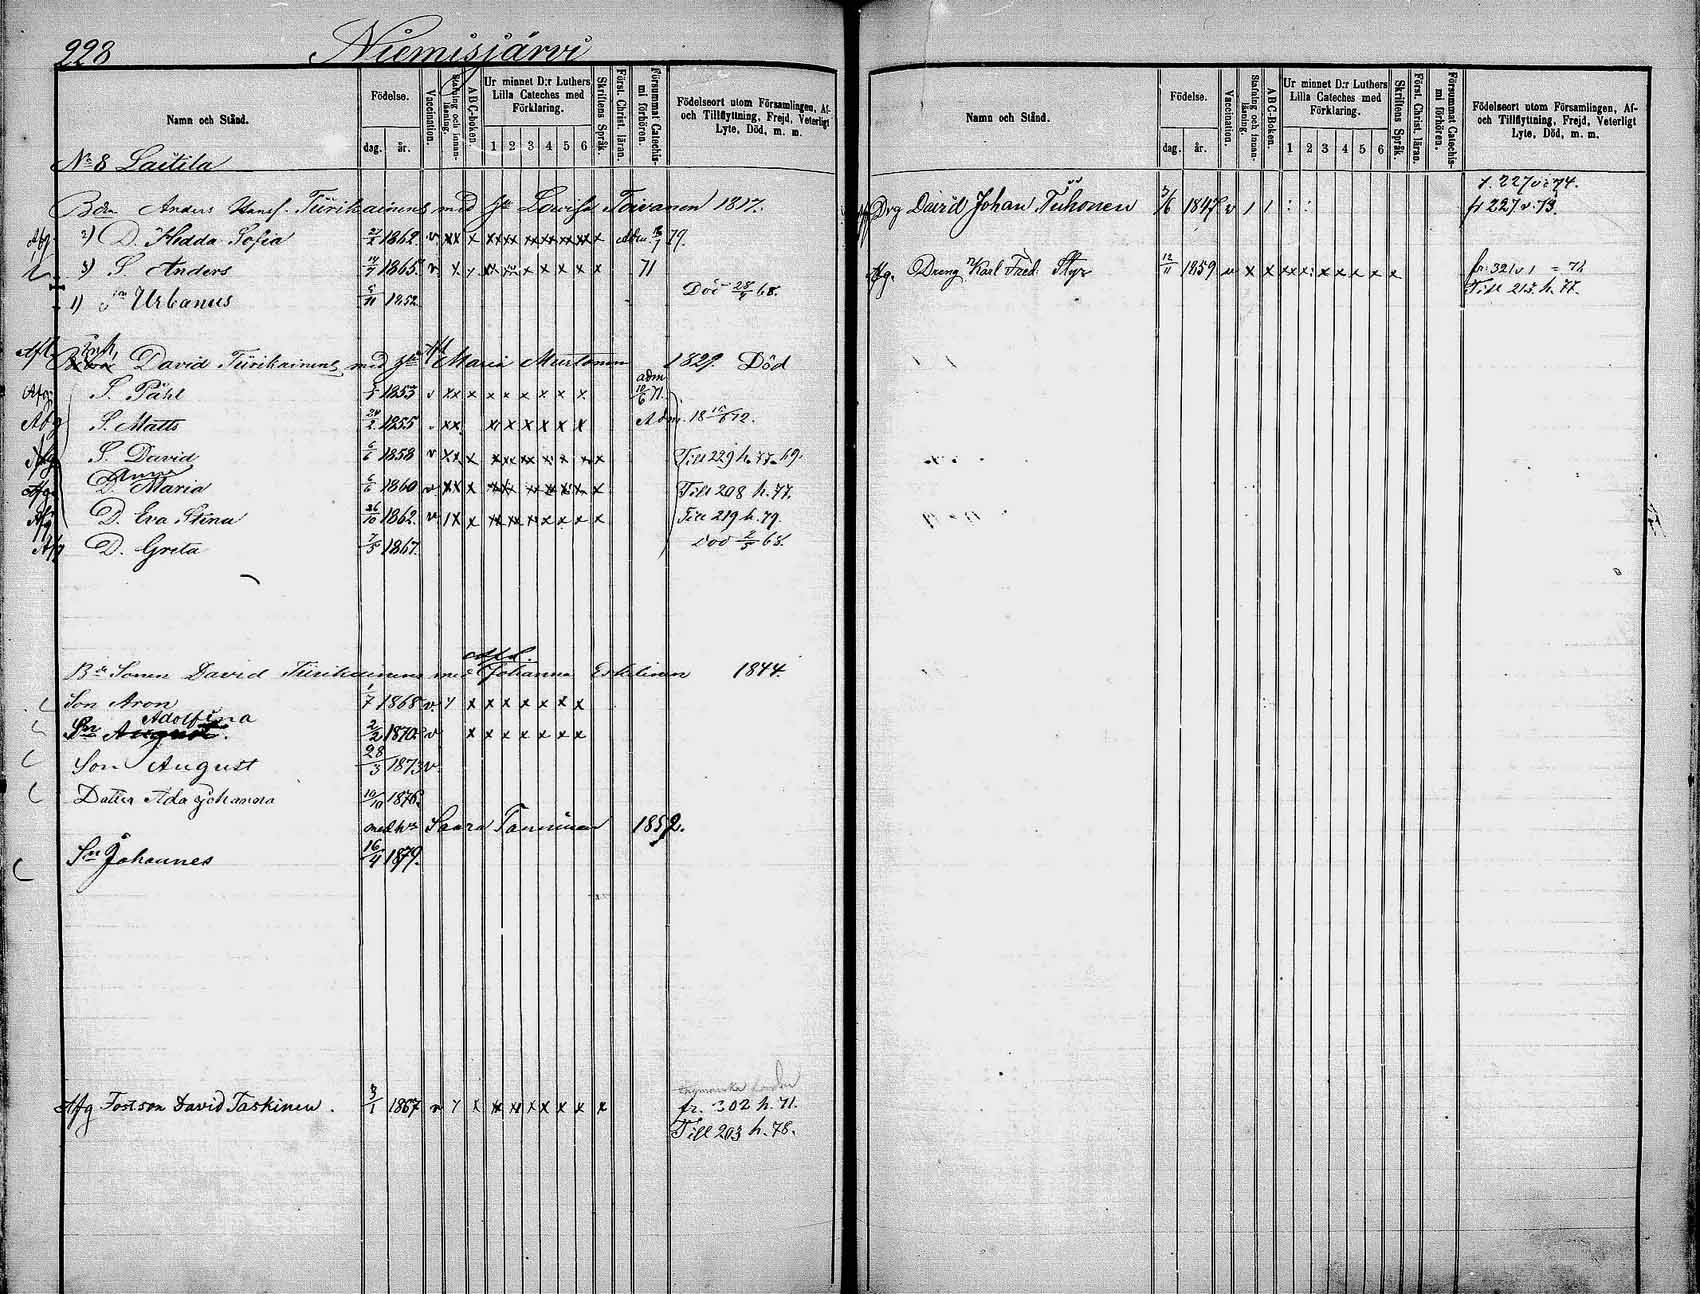 228 Niemisjärvi
Namn och Stånd.
Födelse.
dag. år.
Vaccination.
Stafning och innan-läsning.
A B C-boken.
Ur minnet D:r Luthers Lilla Cateches med Förklaring.
1 2 3 4 5 6
Skriftens Språk.
Först. Christ. läran.
Försummat Catechismi förhören.
Födelseort utom Församlingen, Af- och Tillflyttning, Frejd, Veterligt Lyte, Död, m. m.
No 8 Laitila
Bdn Anders Hansf. Tiirikainens med Lovisa Toivanen 1817.
Afg 2) D. Hedda Sofia 2/2 1862 v xx x Adm. 79.
3) S. Anders 1865 v x x 71
1) Urbanus 1852 Död 28/4 68.
Inh. David Tiirikainens med Maria Mustonen 1829. Död
S. Påhl 1853 adm 10/6 71.
Afg S. Matts 24/2 1855 Adm. 18 72.
S. David 6/6 1858 v Till 229 h. 77. 69.
Anna
Afg D. Maria 6/6 1860 v Till 208 h. 77.
Afg D. Eva Stina 26/10 1862. v. Till 219 h. 79.
Afg D. Greta 7/5 1867. Död 2/5 68.
Bd Sonen David Tiirikainens med Johanna Eskelinen 1844.
Son Aron 1/7 1868 v. x x x x x x x
Adolfina
Sn August. 2/2 1870 v x x x x x x x
Son August 28/3 1873 v.
Datter Ada Johanna 10/10 1876.
med h: Saara Tanninen 1852.
Sn Johannes 16/4 1879.
Afg Fostson David Taskinen. 3/1 1867 v
fr. 302 h. 71.
Till 203 h. 78.
Namn och Stånd.
Födelse.
dag. år.
Vaccination.
Stafning och innan-läsning.
A B C-Boken.
Ur minnet D:r Luthers Lilla Cateches med Förklaring.
1 2 3 4 5 6
Skriftens Språk.
Först. Christ. läran.
Försummat Catechismi förhören.
Födelseort utom Församlingen, Af- och Tillflyttning, Frejd, Veterligt Lyte, Död, m. m.
t. 227 v: 74.
Drg David Johan Tuhonen 3/6 1847 v 1 1 fr 227 v. 73.
Afg. Dreng Karl Fred. Styr 12/11 1859 x x
Till 215. h. 77.